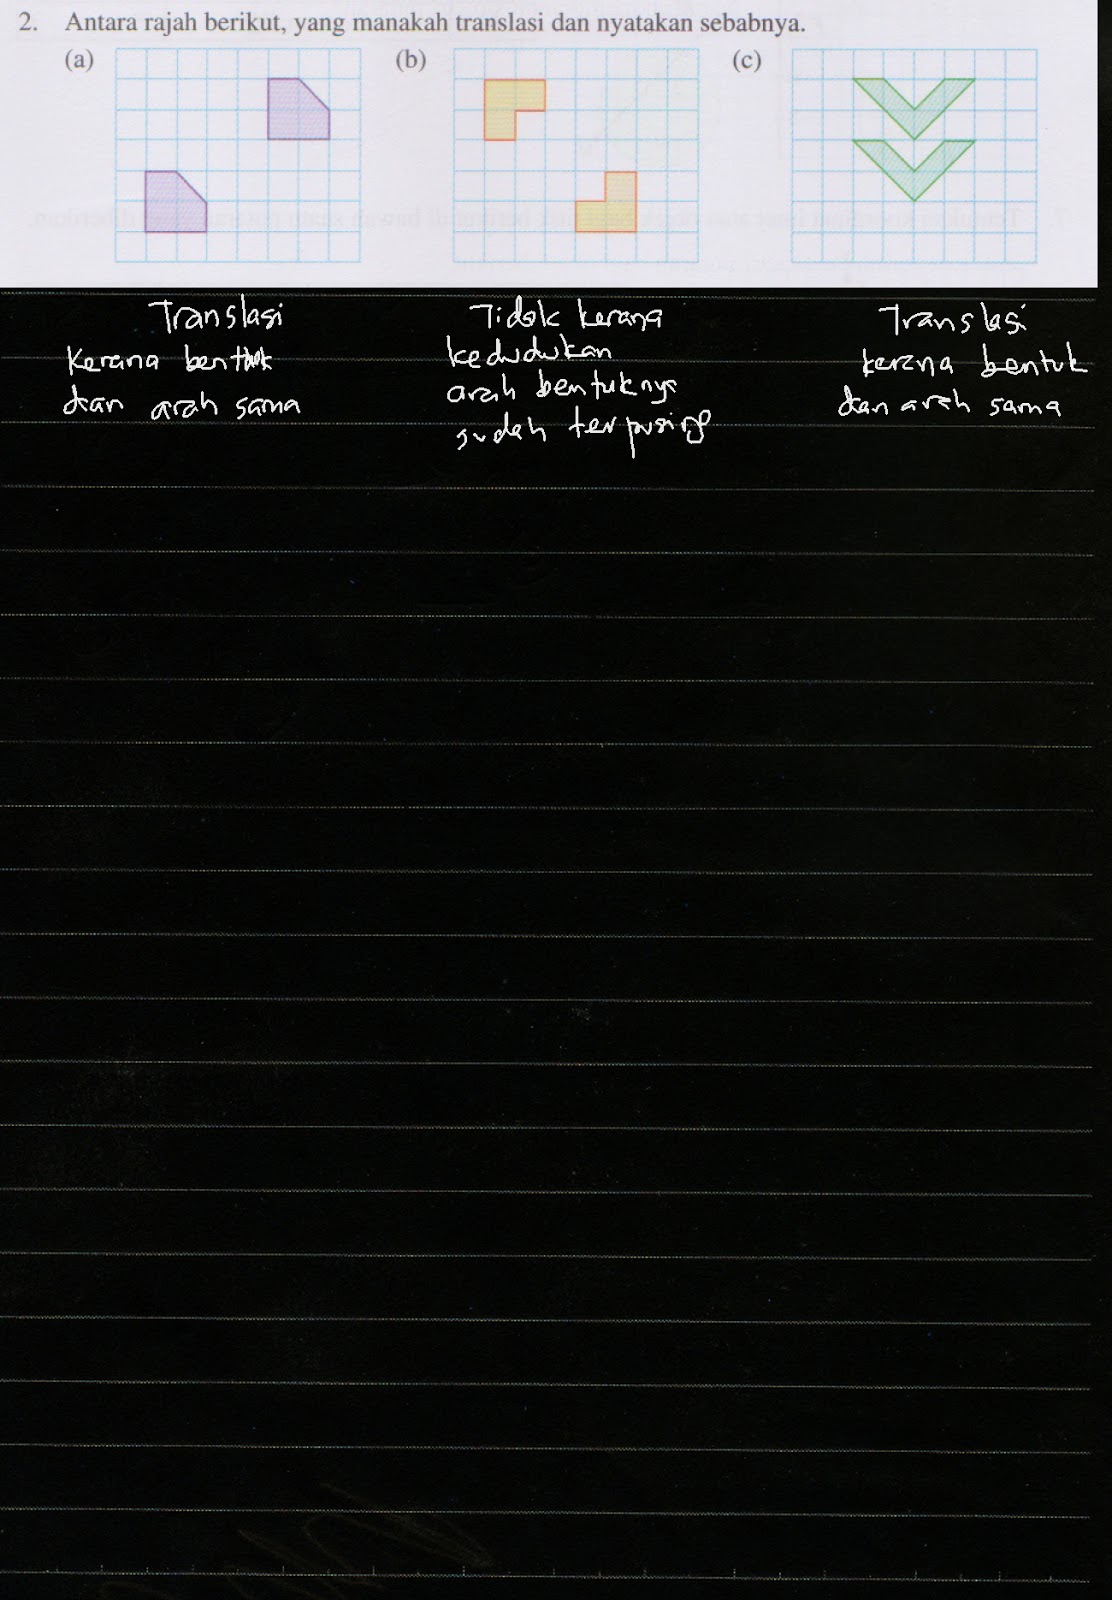 2. Antara rajah berikut, yang manakah translasi dan nyatakan sebabnya.
(a) (b) (c)
Translasi
kerana bentuk
dan arah sama
Tidak kerana
kedudukan
arah bentuknya
sudah terpusing
Translasi
kerana bentuk
dan arah sama